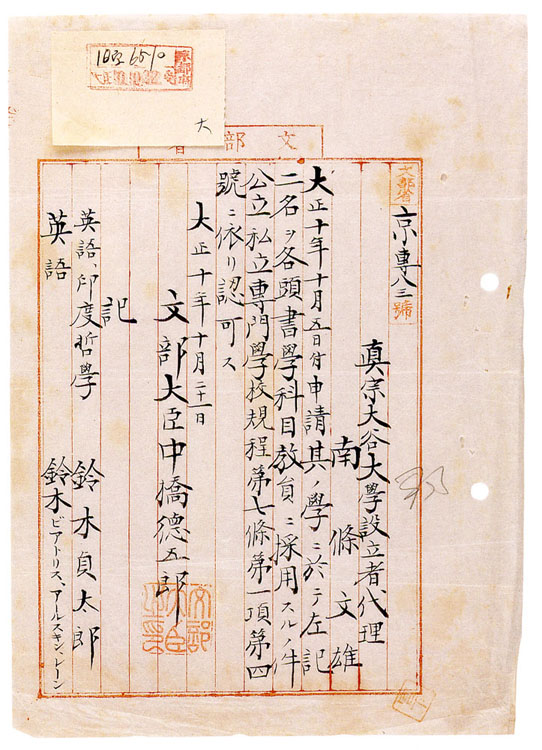 10東6510
大
文部省
文部省
京專八三號
眞宗大谷大學設立者代理
南條文雄
大正十年十月五日付申請其ノ學ニ於テ左記
二名ヲ各頭書學科目教員ニ採用スルノ件
公立私立專門學校規程第七條第一項第四
號ニ依リ認可ス
大正十年十月二十一日
文部大臣中橋德五郎
記
英語、印度哲學 鈴木貞太郎
英語 鈴木ビアトリス、アールスキン、レーン